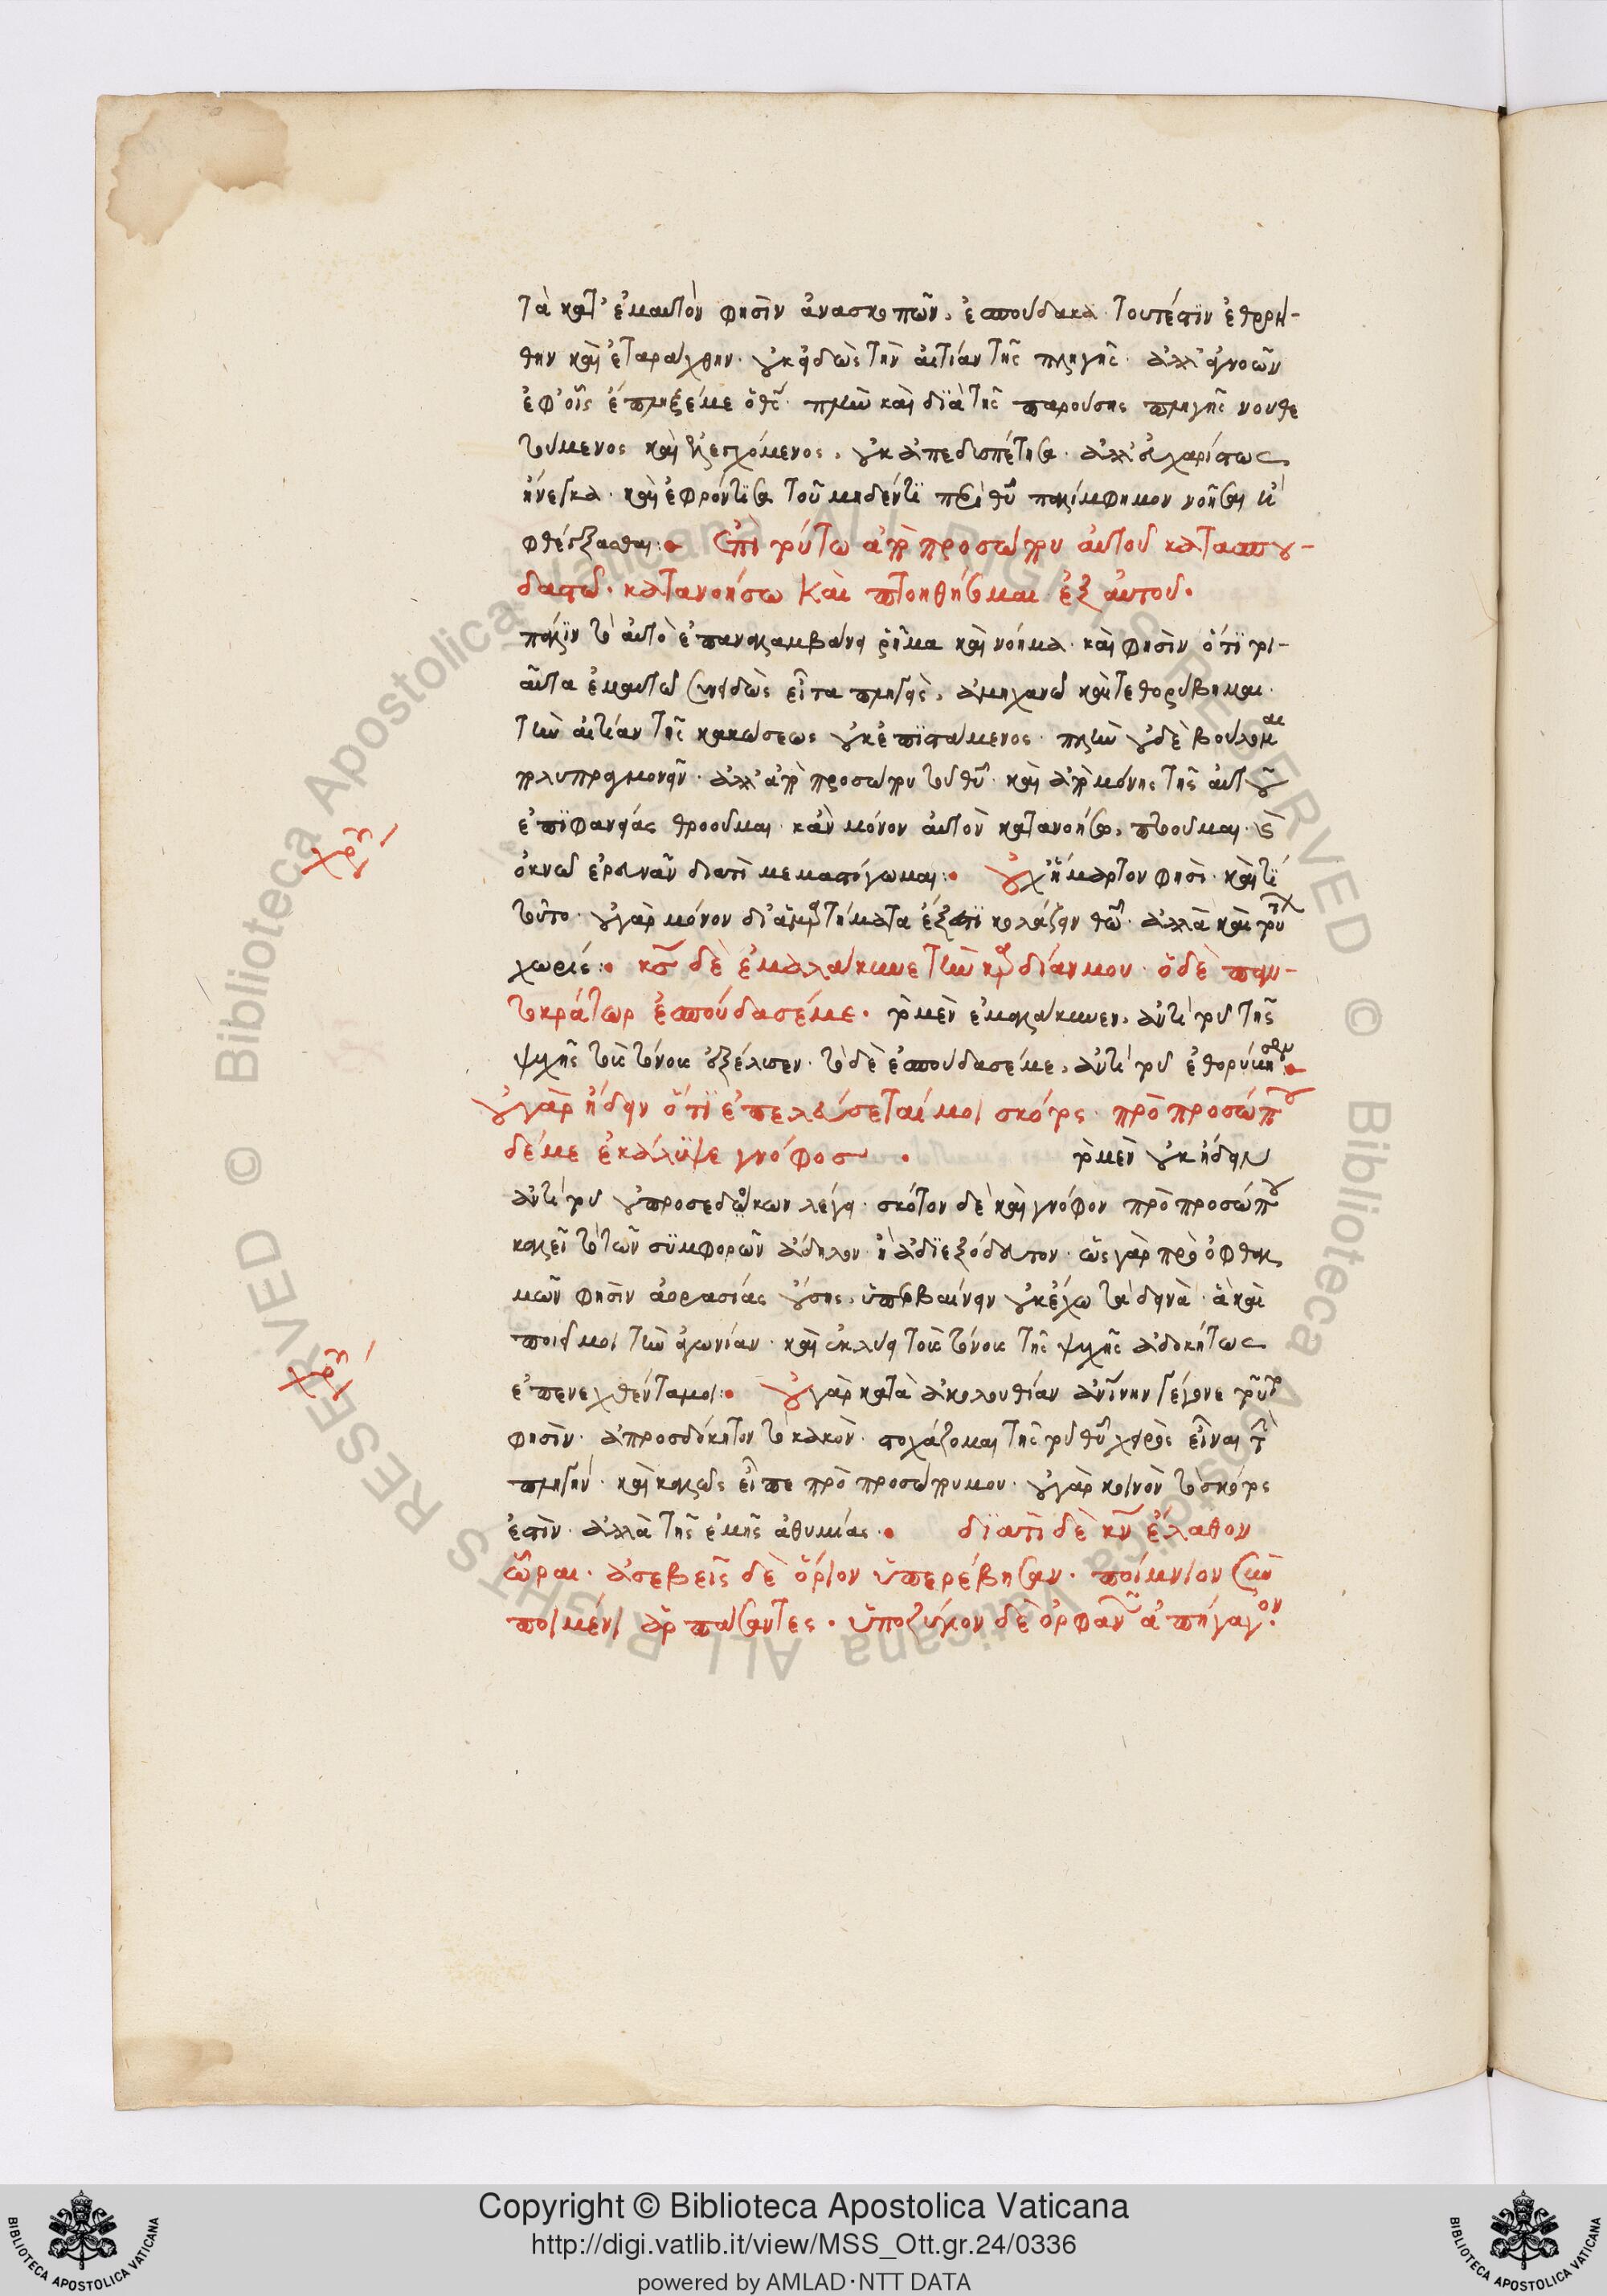 τὰ κατ' ἐμαυτὸν φησὶν ἀνασκοπῶν, ἐσπούδακα· τουτέστιν ἐθροή-
θην καὶ ἐταράχθην· οὐκ εἰδὼς τὴν αἰτίαν τῆς πληγῆς· ἀλλ' ἀγνοῶν
ἐφ' οἷς ἔπληξέ με ὁ θς· πλὴν καὶ διὰ τῆς παρούσης πληγῆς νουθε
τούμενος καὶ ἐλεγχόμενος, οὐκ ἀπεδυσπέτησα· ἀλλ' εὐχαρίστως
ἤνεγκα· καὶ ἐφρόντισα τοῦ μηδέν τι περὶ θυ παλίμφημον νοῆσαι ἢ
φθέγξασθαι: ἐπὶ τούτω ἀπὸ προσώπου αὐτοῦ κατασπου-
δασθῶ· κατανοήσω καὶ πτοηθήσομαι ἐξ αὐτοῦ.
πάλιν τὸ αὐτὸ ἐπαναλαμβάνει ῥῆμα καὶ νόημα· καὶ φησὶν ὅτι τοι-
αῦτα ἐμαυτῶ συνειδὼς εἶτα πληγεὶς, ἀμηχανῶ καὶ τεθορύβημαι·
τὴν αἰτίαν τῆς κακώσεως οὐκ ἐπιστάμενος· πλὴν οὐδὲ βούλομαι
πολυπραγμονεῖν· ἀλλ' ἀπὸ προσώπου τοῦ θυ· καὶ ἀπὸ μόνης τῆς αὐτοῦ
ἐπιφανείας θροοῦμαι· κἂν μόνον αὐτὸν κατανοήσω, πτοοῦμαι· καὶ
ὀκνῶ ἐρευνᾶν διατί μεμαστίγωμαι: οὐχ ἥμαρτον φησί· καὶ τί
τοῦτο· οὐ γὰρ μόνον δι' ἁμαρτήματα ἔξεστι κολάζειν θω· ἀλλὰ καὶ τούτων
χωρίς: κς δὲ ἐμαλάκυνε τὴν καρδίαν μου· ὁ δὲ παν-
τοκράτωρ ἐσπούδασέ με. τὸ μὲν ἐμαλάκυνεν, ἀντὶ τοῦ τῆς
ψυχῆς τοὺς τόνους ἐξέλυσεν· τὸ δὲ ἐσπούδασέ με, ἀντὶ τοῦ ἐθορύβησεν
οὐ γὰρ ᾔδειν ὅτι ἐπελεύσεταί μοι σκότος· πρὸ προσώπου
δέ με ἐκάλυψε γνόφος. τὸ μὲν οὐκ ᾔδειν
ἀντὶ τοῦ οὐ προσεδόκων λέγει· σκότον δὲ καὶ γνόφον πρὸ προσώπου
καλεῖ τὸ τῶν συμφορῶν ἄδηλον ἢ ἀδιεξόδευτον· ὡς γὰρ πρὸ ὀφθαλ
μῶν φησὶν ἀορασίας οὔσης, ὑπερβαίνειν οὐκ ἔχω τὰ δεινὰ· ἃ καὶ
ποιεῖ μοι τὴν ἀγωνίαν· καὶ ἐκλύει τοὺς τόνους τῆς ψυχῆς ἀδοκήτως
ἐπενεχθέντα μοι: οὐ γὰρ κατὰ ἀκολουθίαν ἀνθίνην γέγονε τοῦτο
φησὶν· ἀπροσδόκητον τὸ κακὸν· στοχάζομαι τῆς τοῦ θυ χειρὸς εἶναι τὴν
πληγήν· καὶ καλῶς εἶπε πρὸ προσώπου μου· οὐ γὰρ κοινὸν τὸ σκότος
ἐστὶν· ἀλλὰ τῆς ἐμῆς ἀθυμίας. διατί δὲ κν ἔλαθον
ὧραι· ἀσεβεῖς δὲ ὅριον ὑπερέβησαν· ποίμνιον σὺν
ποιμένι ἁρπάσαντες. ὑποζύγιον δὲ ὀρφανῶν ἀπήγαγον:
Copyright © Biblioteca Apostolica Vaticana
http://digi.vatlib.it/view/MSS_Ott.gr.24/0336
powered by AMLAD·NTT DATA